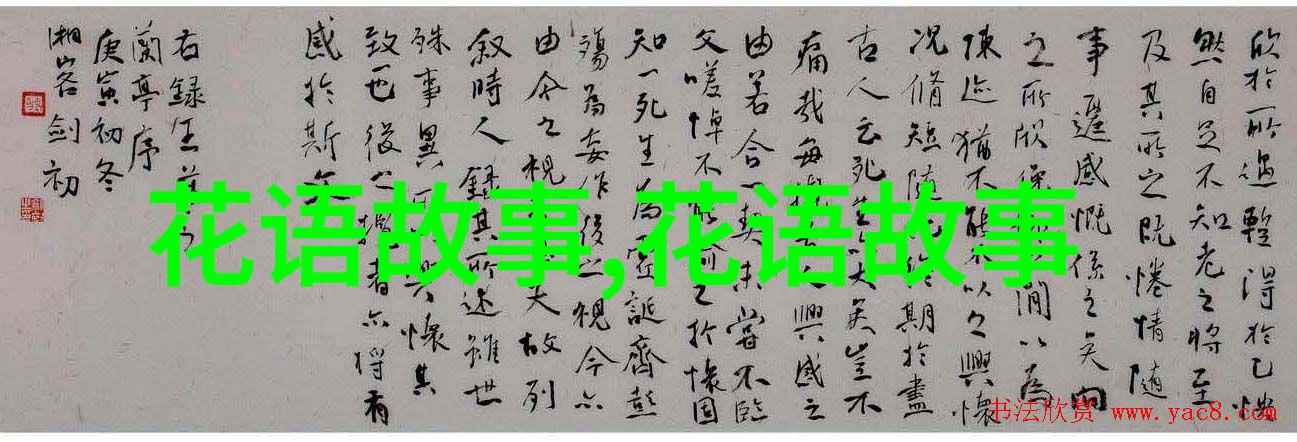 欣於所遇輕得於己快
然自足不知老之將至
及其所之既惓情隨
事遷感慨係之矣向
之所欣俛仰之間以為
陳迹猶不能不以之興懷
況脩短隨化終期於盡
古人云死生亦大矣豈不
痛哉每攬昔人興感之
由若合一契未嘗不臨
文嗟悼不能喻之於懷固
知一死生為虛誕齊彭
殤為妄作後之視今亦
由今之視昔悲夫故列
敘時人錄其所述雖世
殊事異所以興懷其
致一也後之攬者亦將有
感於斯文
右錄王羲之
蘭亭序
庚寅初冬
湘客劍初
花语故事,花语故事
书法欣赏 www.yac8.com